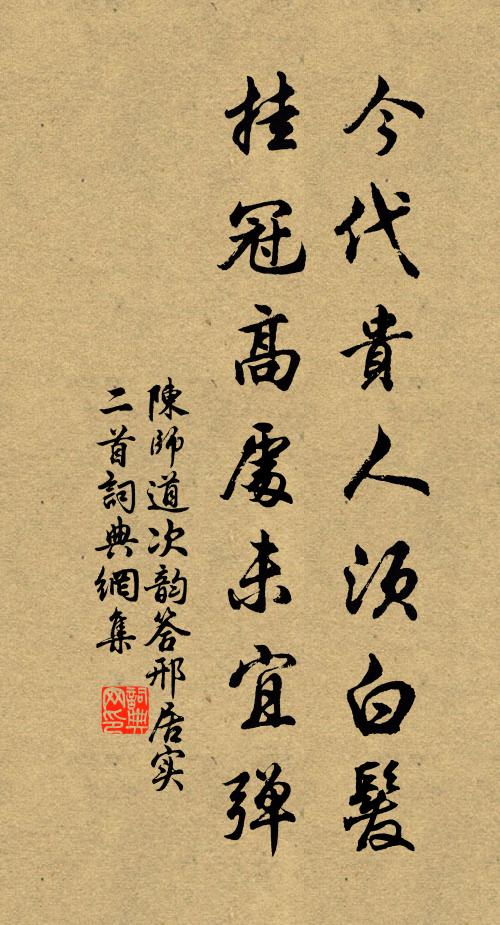 今代貴人須白髮
挂冠高處未宜彈
陳師道次韵答邢居实
二首詞典網集
詞典
网印